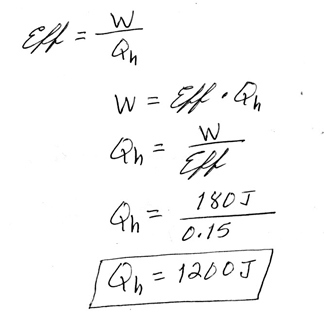 Eff = W / Qh
W = Eff · Qh
Qh = W / Eff
Qh = 180 J / 0.15
Qh = 1200 J